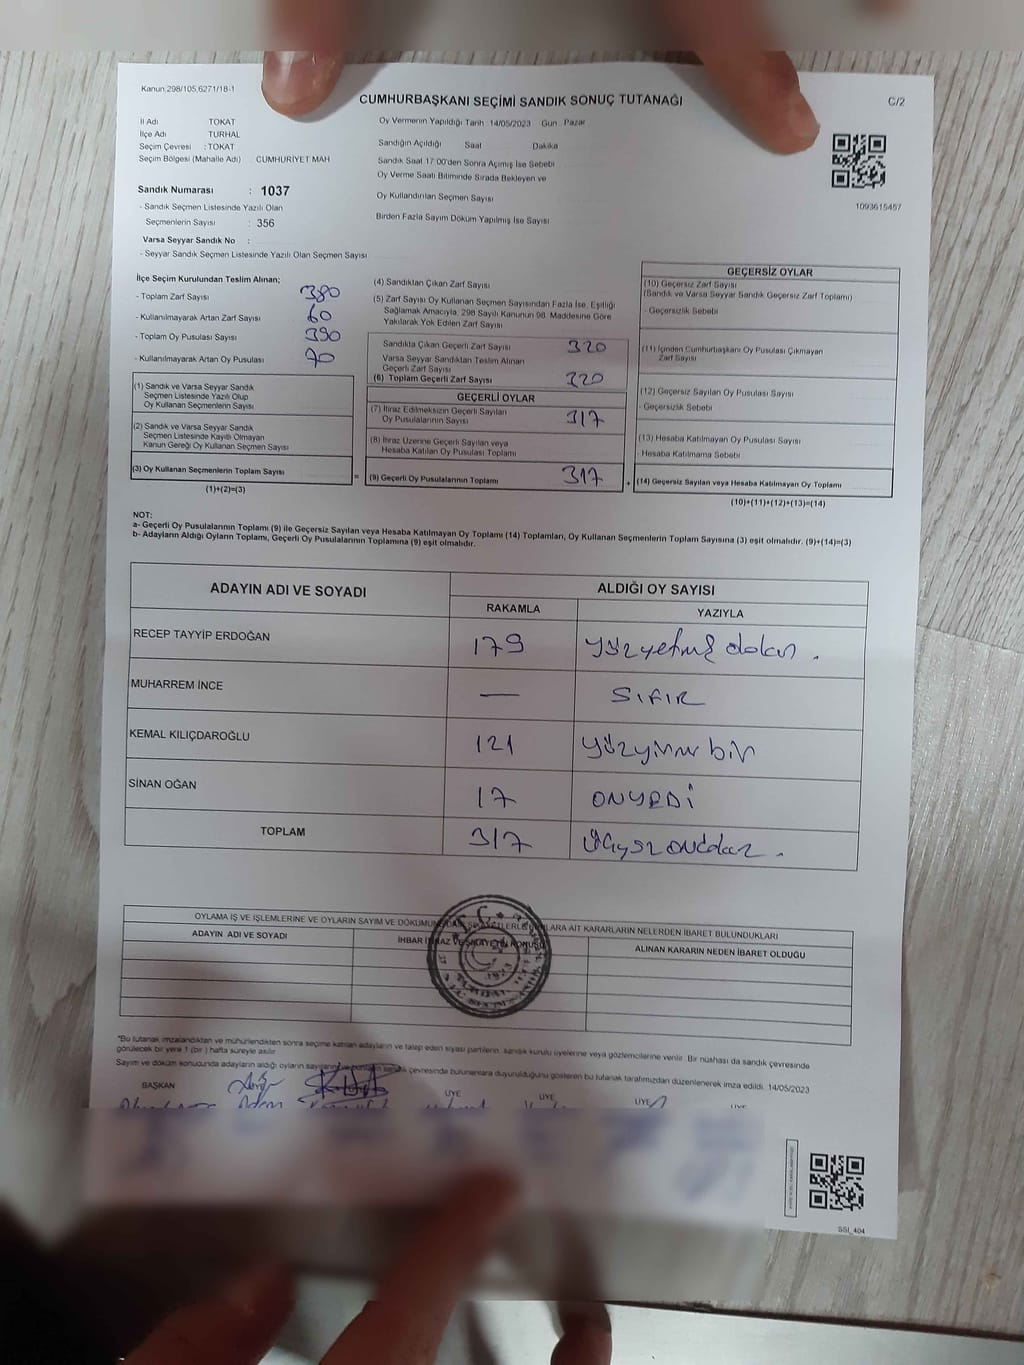 Kanun 298/105,6271/18-1
CUMHURBAŞKANI SEÇİMİ SANDIK SONUÇ TUTANAĞI
C/2
İl Adı TOKAT
İlçe Adı TURHAL
Seçim Çevresi : TOKAT
Seçim Bölgesi (Mahalle Adı) CUMHURİYET MAH
Sandık Numarası : 1037
- Sandık Seçmen Listesinde Yazılı Olan
Seçmenlerin Sayısı : 356
Varsa Seyyar Sandık No :
- Seyyar Sandık Seçmen Listesinde Yazılı Olan Seçmen Sayısı
Oy Vermenin Yapıldığı Tarih 14/05/2023 Gün Pazar
Sandığın Açıldığı Saat Dakika
Sandık Saat 17.00'den Sonra Açımış İse Sebebi
Oy Verme Saati Bitiminde Sırada Bekleyen ve
Oy Kullandırılan Seçmen Sayısı
Birden Fazla Sayım Döküm Yapılmış İse Sayısı
1093615457
İlçe Seçim Kurulundan Teslim Alınan;
- Toplam Zarf Sayısı 380
- Kullanılmayarak Artan Zarf Sayısı 60
- Toplam Oy Pusulası Sayısı 390
- Kullanılmayarak Artan Oy Pusulası 70
(1) Sandık ve Varsa Seyyar Sandık
Seçmen Listesinde Yazılı Olup
Oy Kullanan Seçmenlerin Sayısı
(2) Sandık ve Varsa Seyyar Sandık
Seçmen Listesinde Kayıtlı Olmayan
Kanun Gereği Oy Kullanan Seçmen Sayısı
(3) Oy Kullanan Seçmenlerin Toplam Sayısı
(1)+(2)=(3)
(4) Sandıktan Çıkan Zarf Sayısı
(5) Zarf Sayısı Oy Kullanan Seçmen Sayısından Fazla İse, Eşitliği
Sağlamak Amacıyla, 298 Sayılı Kanunun 98. Maddesine Göre
Yakılarak Yok Edilen Zarf Sayısı
Sandıkta Çıkan Geçerli Zarf Sayısı 320
Varsa Seyyar Sandıktan Teslim Alınan
Geçerli Zarf Sayısı
(6) Toplam Geçerli Zarf Sayısı 320
GEÇERLİ OYLAR
(7) İtiraz Edilmeksizin Geçerli Sayılan
Oy Pusulalarının Sayısı 317
(8) İtiraz Üzerine Geçerli Sayılan veya
Hesaba Katılan Oy Pusulası Toplamı
= (9) Geçerli Oy Pusulalarının Toplamı 317 +
GEÇERSİZ OYLAR
(10) Geçersiz Zarf Sayısı
(Sandık ve Varsa Seyyar Sandık Geçersiz Zarf Toplamı)
- Geçersizlik Sebebi
(11) İçinden Cumhurbaşkanı Oy Pusulası Çıkmayan
Zarf Sayısı
(12) Geçersiz Sayılan Oy Pusulası Sayısı
- Geçersizlik Sebebi
(13) Hesaba Katılmayan Oy Pusulası Sayısı
- Hesaba Katılmama Sebebi
(14) Geçersiz Sayılan veya Hesaba Katılmayan Oy Toplamı
(10)+(11)+(12)+(13)=(14)
NOT:
a- Geçerli Oy Pusulalarının Toplamı (9) ile Geçersiz Sayılan veya Hesaba Katılmayan Oy Toplamı (14) Toplamları, Oy Kullanan Seçmenlerin Toplam Sayısına (3) eşit olmalıdır. (9)+(14)=(3)
b- Adayların Aldığı Oyların Toplamı, Geçerli Oy Pusulalarının Toplamına (9) eşit olmalıdır.
ADAYIN ADI VE SOYADI ALDIĞI OY SAYISI
RAKAMLA YAZIYLA
RECEP TAYYİP ERDOĞAN 179 yüzyetmiş dokuz .
MUHARREM İNCE — SIFIR
KEMAL KILIÇDAROĞLU 121 yüzyirmi bir
SİNAN OĞAN 17 ONYEDİ
TOPLAM 317
OYLAMA İŞ VE İŞLEMLERİNE VE OYLARIN SAYIM VE DÖKÜMÜNE AİT KARARLARIN NELERDEN İBARET BULUNDUKLARI
ADAYIN ADI VE SOYADI İHBAR İTİRAZ VE ŞİKAYETİN KONUSU ALINAN KARARIN NEDEN İBARET OLDUĞU
*Bu tutanak imzalandıktan ve mühürlendikten sonra seçime katılan adayların ve talep eden siyasi partilerin sandık kurulu üyelerine veya gözlemcilerine verilir. Bir nüshası da sandık çevresinde
görülecek bir yere 1 (bir) hafta süreyle asılır
Sayım ve döküm sonucunda adayların aldığı oyların sandık çevresinde bulunanlara duyurulduğunu gösteren bu tutanak tarafımızdan düzenlenerek imza edildi. 14/05/2023
BAŞKAN ÜYE ÜYE ÜYE ÜYE
Adem
SSİ_404